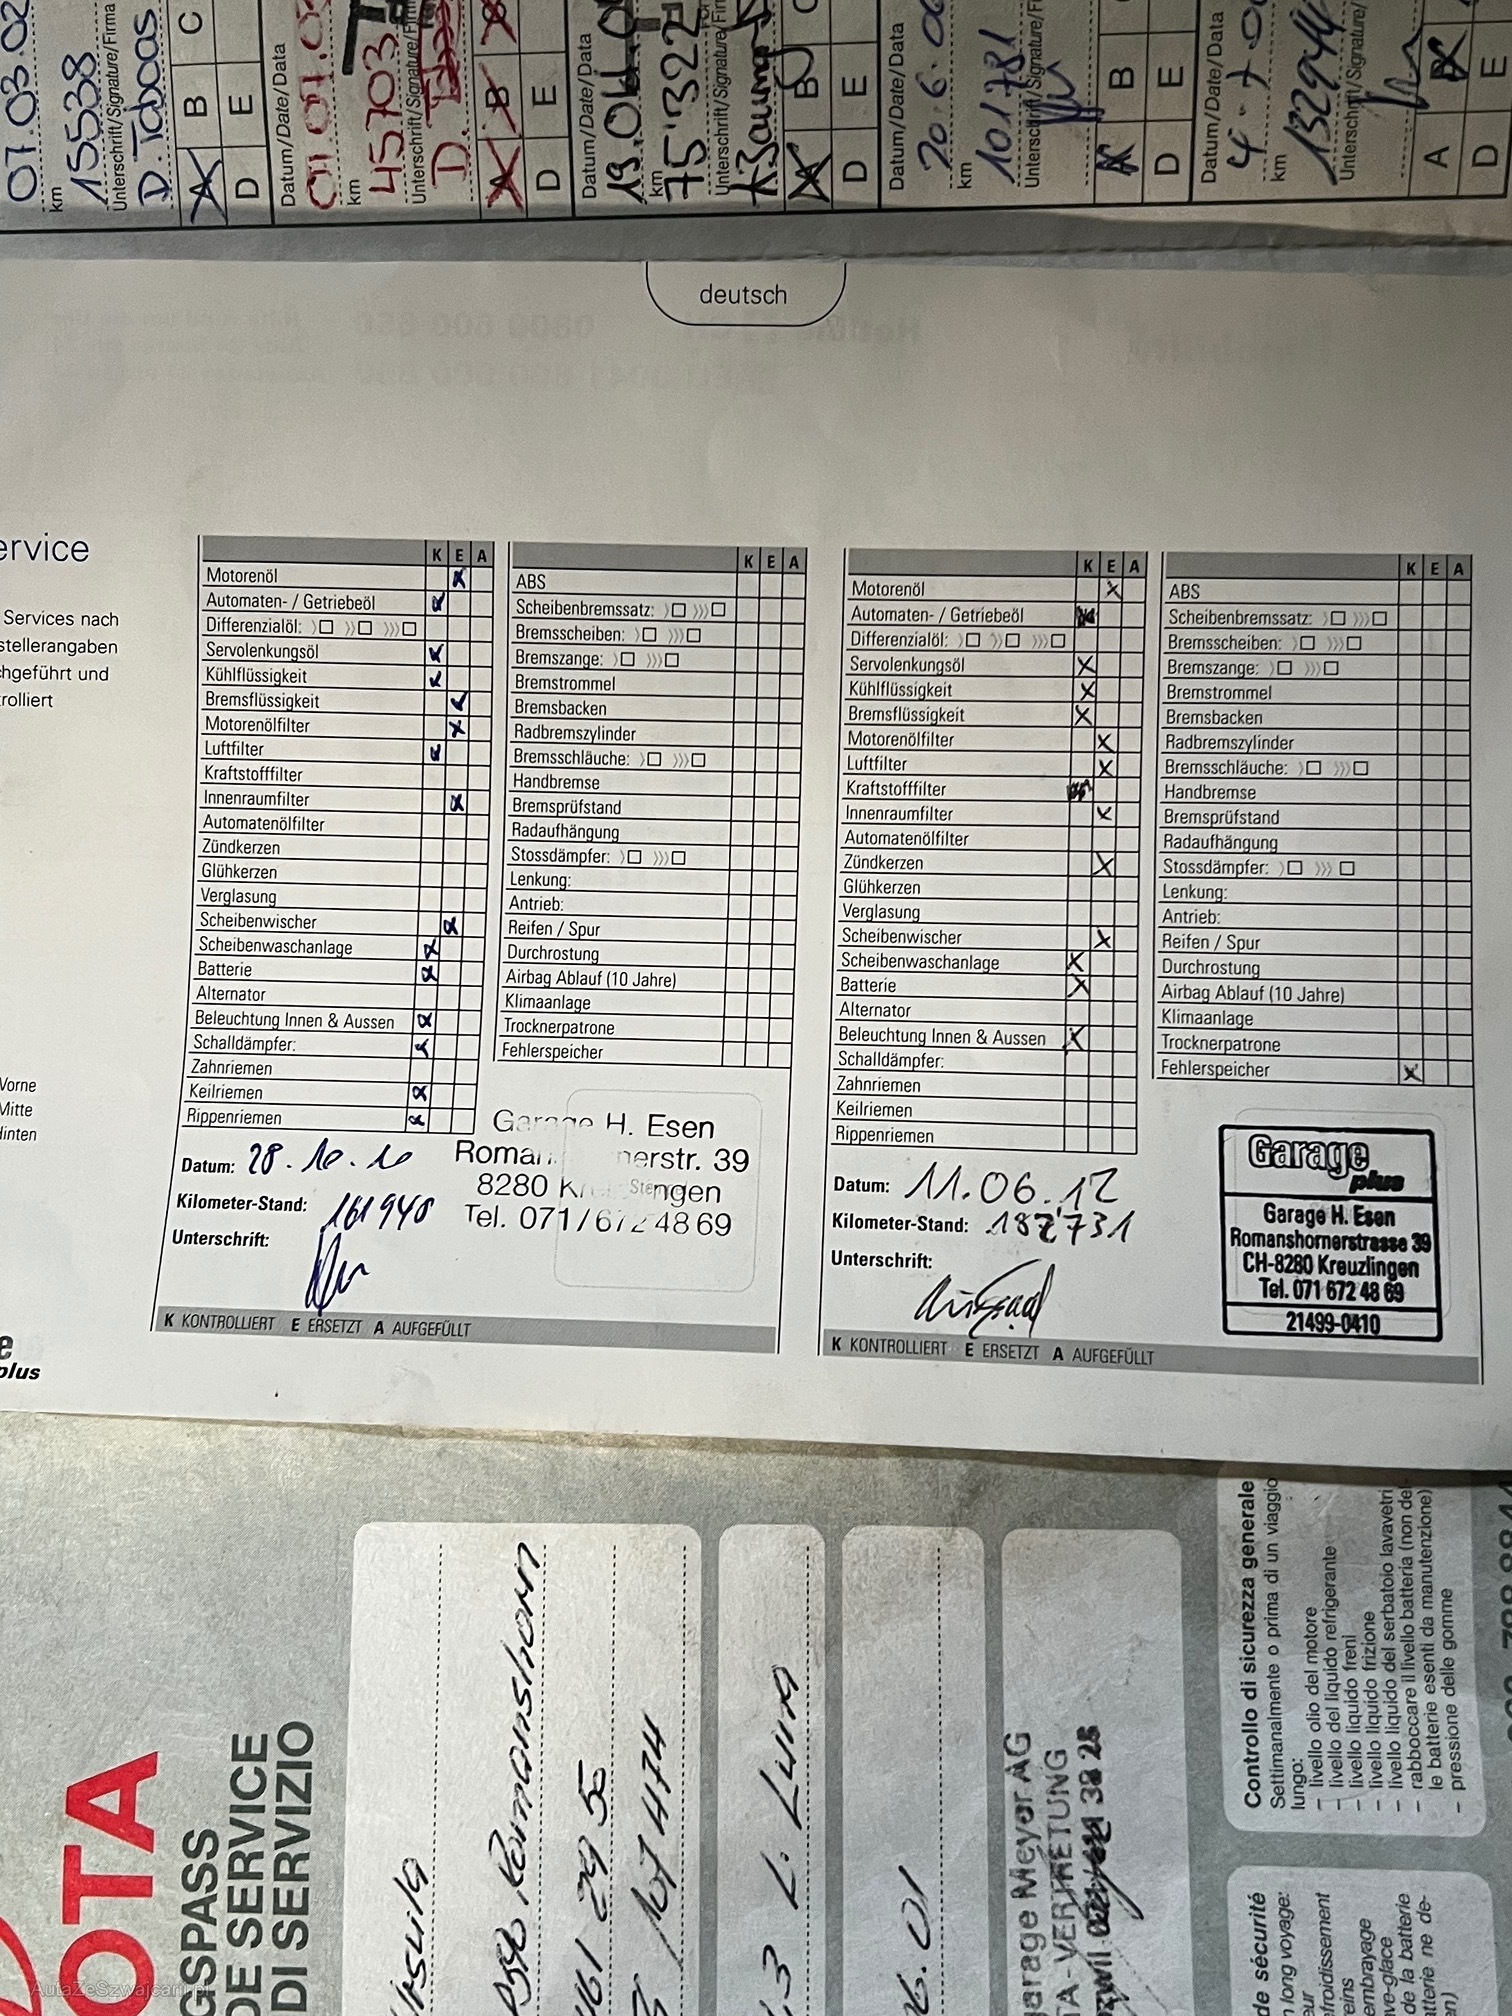 07.03.02
km
15538
Unterschrift/Signature/Firma
D. Taboas
A B C
D E
Datum/Date/Data
km
45703
Unterschrift/Signature/Firma
D.
A B
D E
Datum/Date/Data
19.04.0
km
75'322
Unterschrift/Signature/Firma
A B C
D E
Datum/Date/Data
20.6.06
km
101781
Unterschrift/Signature/Firma
A B
D E
Datum/Date/Data
4.7.0
km
Unterschrift/Signature/
A B
D E
deutsch
ervice
Services nach
stellerangaben
chgeführt und
rolliert
Vorne
Mitte
Hinten
e
plus
K E A
Motorenöl
Automaten- / Getriebeöl
Differenzialöl: 〉☐ 〉〉☐ 〉〉〉☐
Servolenkungsöl
Kühlflüssigkeit
Bremsflüssigkeit
Motorenölfilter
Luftfilter
Kraftstofffilter
Innenraumfilter
Automatenölfilter
Zündkerzen
Glühkerzen
Verglasung
Scheibenwischer
Scheibenwaschanlage
Batterie
Alternator
Beleuchtung Innen & Aussen
Schalldämpfer:
Zahnriemen
Keilriemen
Rippenriemen
Datum: 28.10.10
Kilometer-Stand: 161940
Unterschrift:
K E A
ABS
Scheibenbremssatz: 〉☐ 〉〉〉☐
Bremsscheiben: 〉☐ 〉〉〉☐
Bremszange: 〉☐ 〉〉〉☐
Bremstrommel
Bremsbacken
Radbremszylinder
Bremsschläuche: 〉☐ 〉〉〉☐
Handbremse
Bremsprüfstand
Radaufhängung
Stossdämpfer: 〉☐ 〉〉〉☐
Lenkung:
Antrieb:
Reifen / Spur
Durchrostung
Airbag Ablauf (10 Jahre)
Klimaanlage
Trocknerpatrone
Fehlerspeicher
Garage H. Esen
Roman nerstr. 39
8280 Kr ngen
Stempel
Tel. 071/672 48 69
K KONTROLLIERT E ERSETZT A AUFGEFÜLLT
K E A
Motorenöl
Automaten- / Getriebeöl
Differenzialöl: 〉☐ 〉〉☐ 〉〉〉☐
Servolenkungsöl
Kühlflüssigkeit
Bremsflüssigkeit
Motorenölfilter
Luftfilter
Kraftstofffilter
Innenraumfilter
Automatenölfilter
Zündkerzen
Glühkerzen
Verglasung
Scheibenwischer
Scheibenwaschanlage
Batterie
Alternator
Beleuchtung Innen & Aussen
Schalldämpfer:
Zahnriemen
Keilriemen
Rippenriemen
Datum: 11.06.12
Kilometer-Stand: 182'731
Unterschrift:
K E A
ABS
Scheibenbremssatz: 〉☐ 〉〉〉☐
Bremsscheiben: 〉☐ 〉〉〉☐
Bremszange: 〉☐ 〉〉〉☐
Bremstrommel
Bremsbacken
Radbremszylinder
Bremsschläuche: 〉☐ 〉〉〉☐
Handbremse
Bremsprüfstand
Radaufhängung
Stossdämpfer: 〉☐ 〉〉〉☐
Lenkung:
Antrieb:
Reifen / Spur
Durchrostung
Airbag Ablauf (10 Jahre)
Klimaanlage
Trocknerpatrone
Fehlerspeicher
Garage
plus
Garage H. Esen
Romanshornerstrasse 39
CH-8280 Kreuzlingen
Tel. 071 672 48 69
21499-0410
K KONTROLLIERT E ERSETZT A AUFGEFÜLLT
OTA
GSPASS
DE SERVICE
DI SERVIZIO
Romanshorn
461 29 55
.3 L. Luna
6.01
Garage Meyer AG
TA-VERTRETUNG
Controllo di sicurezza generale
Settimanalmente o prima di un viaggio
lungo:
– livello olio del motore
– livello del liquido refrigerante
– livello liquido freni
– livello liquido frizione
– livello liquido del serbatoio lavavetri
– rabboccare il livello batteria (non del-
le batterie esenti da manutenzione)
– pressione delle gomme
de sécurité
n long voyage:
eur
froidissement
eins
embrayage
ve-glace
de la batterie
tterie ne de-
en)
AutaZeSzwajcarii.pl